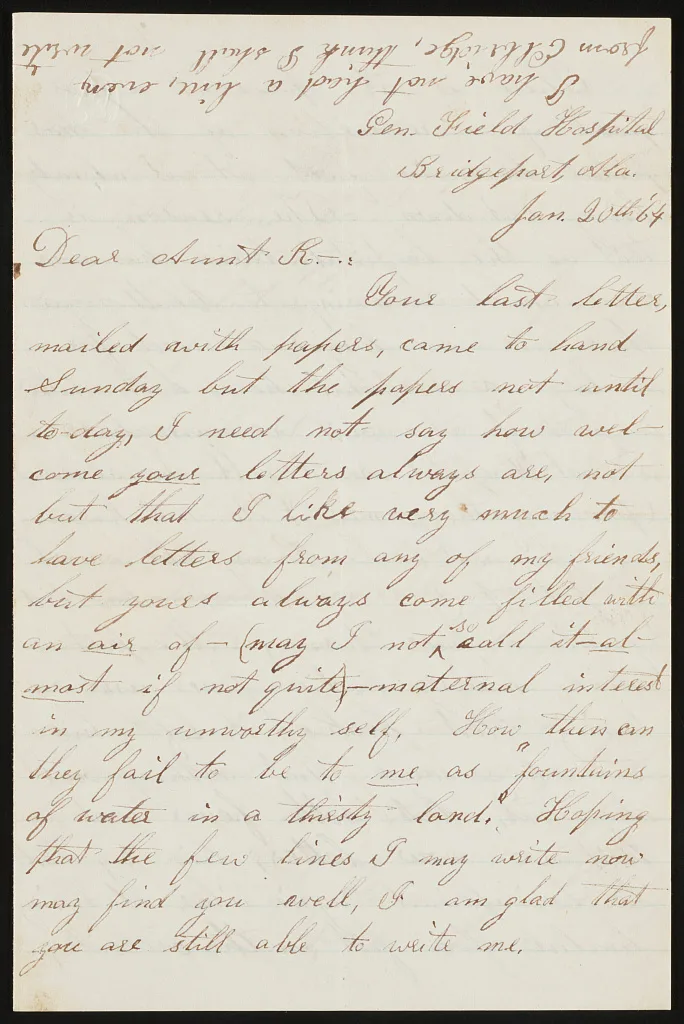 I have not had a line, even
from Elbridge, think I shall not write
Gen. Field Hospital
Bridgeport, Ala.
Jan. 20th '64
Dear Aunt R—.:
Your last letter,
mailed with papers, came to hand
Sunday but the papers not until
to-day, I need not say how wel-
come your letters always are, not
but that I like very much to
have letters from any of my friends,
but yours always come filled with
an air of — (may I not so call it — al-
most if not quite) — maternal interest
in my unworthy self. How then can
they fail to be to me as "fountains
of water in a thirsty land." Hoping
that the few lines I may write now
may find you well, I am glad that
you are still able to write me.